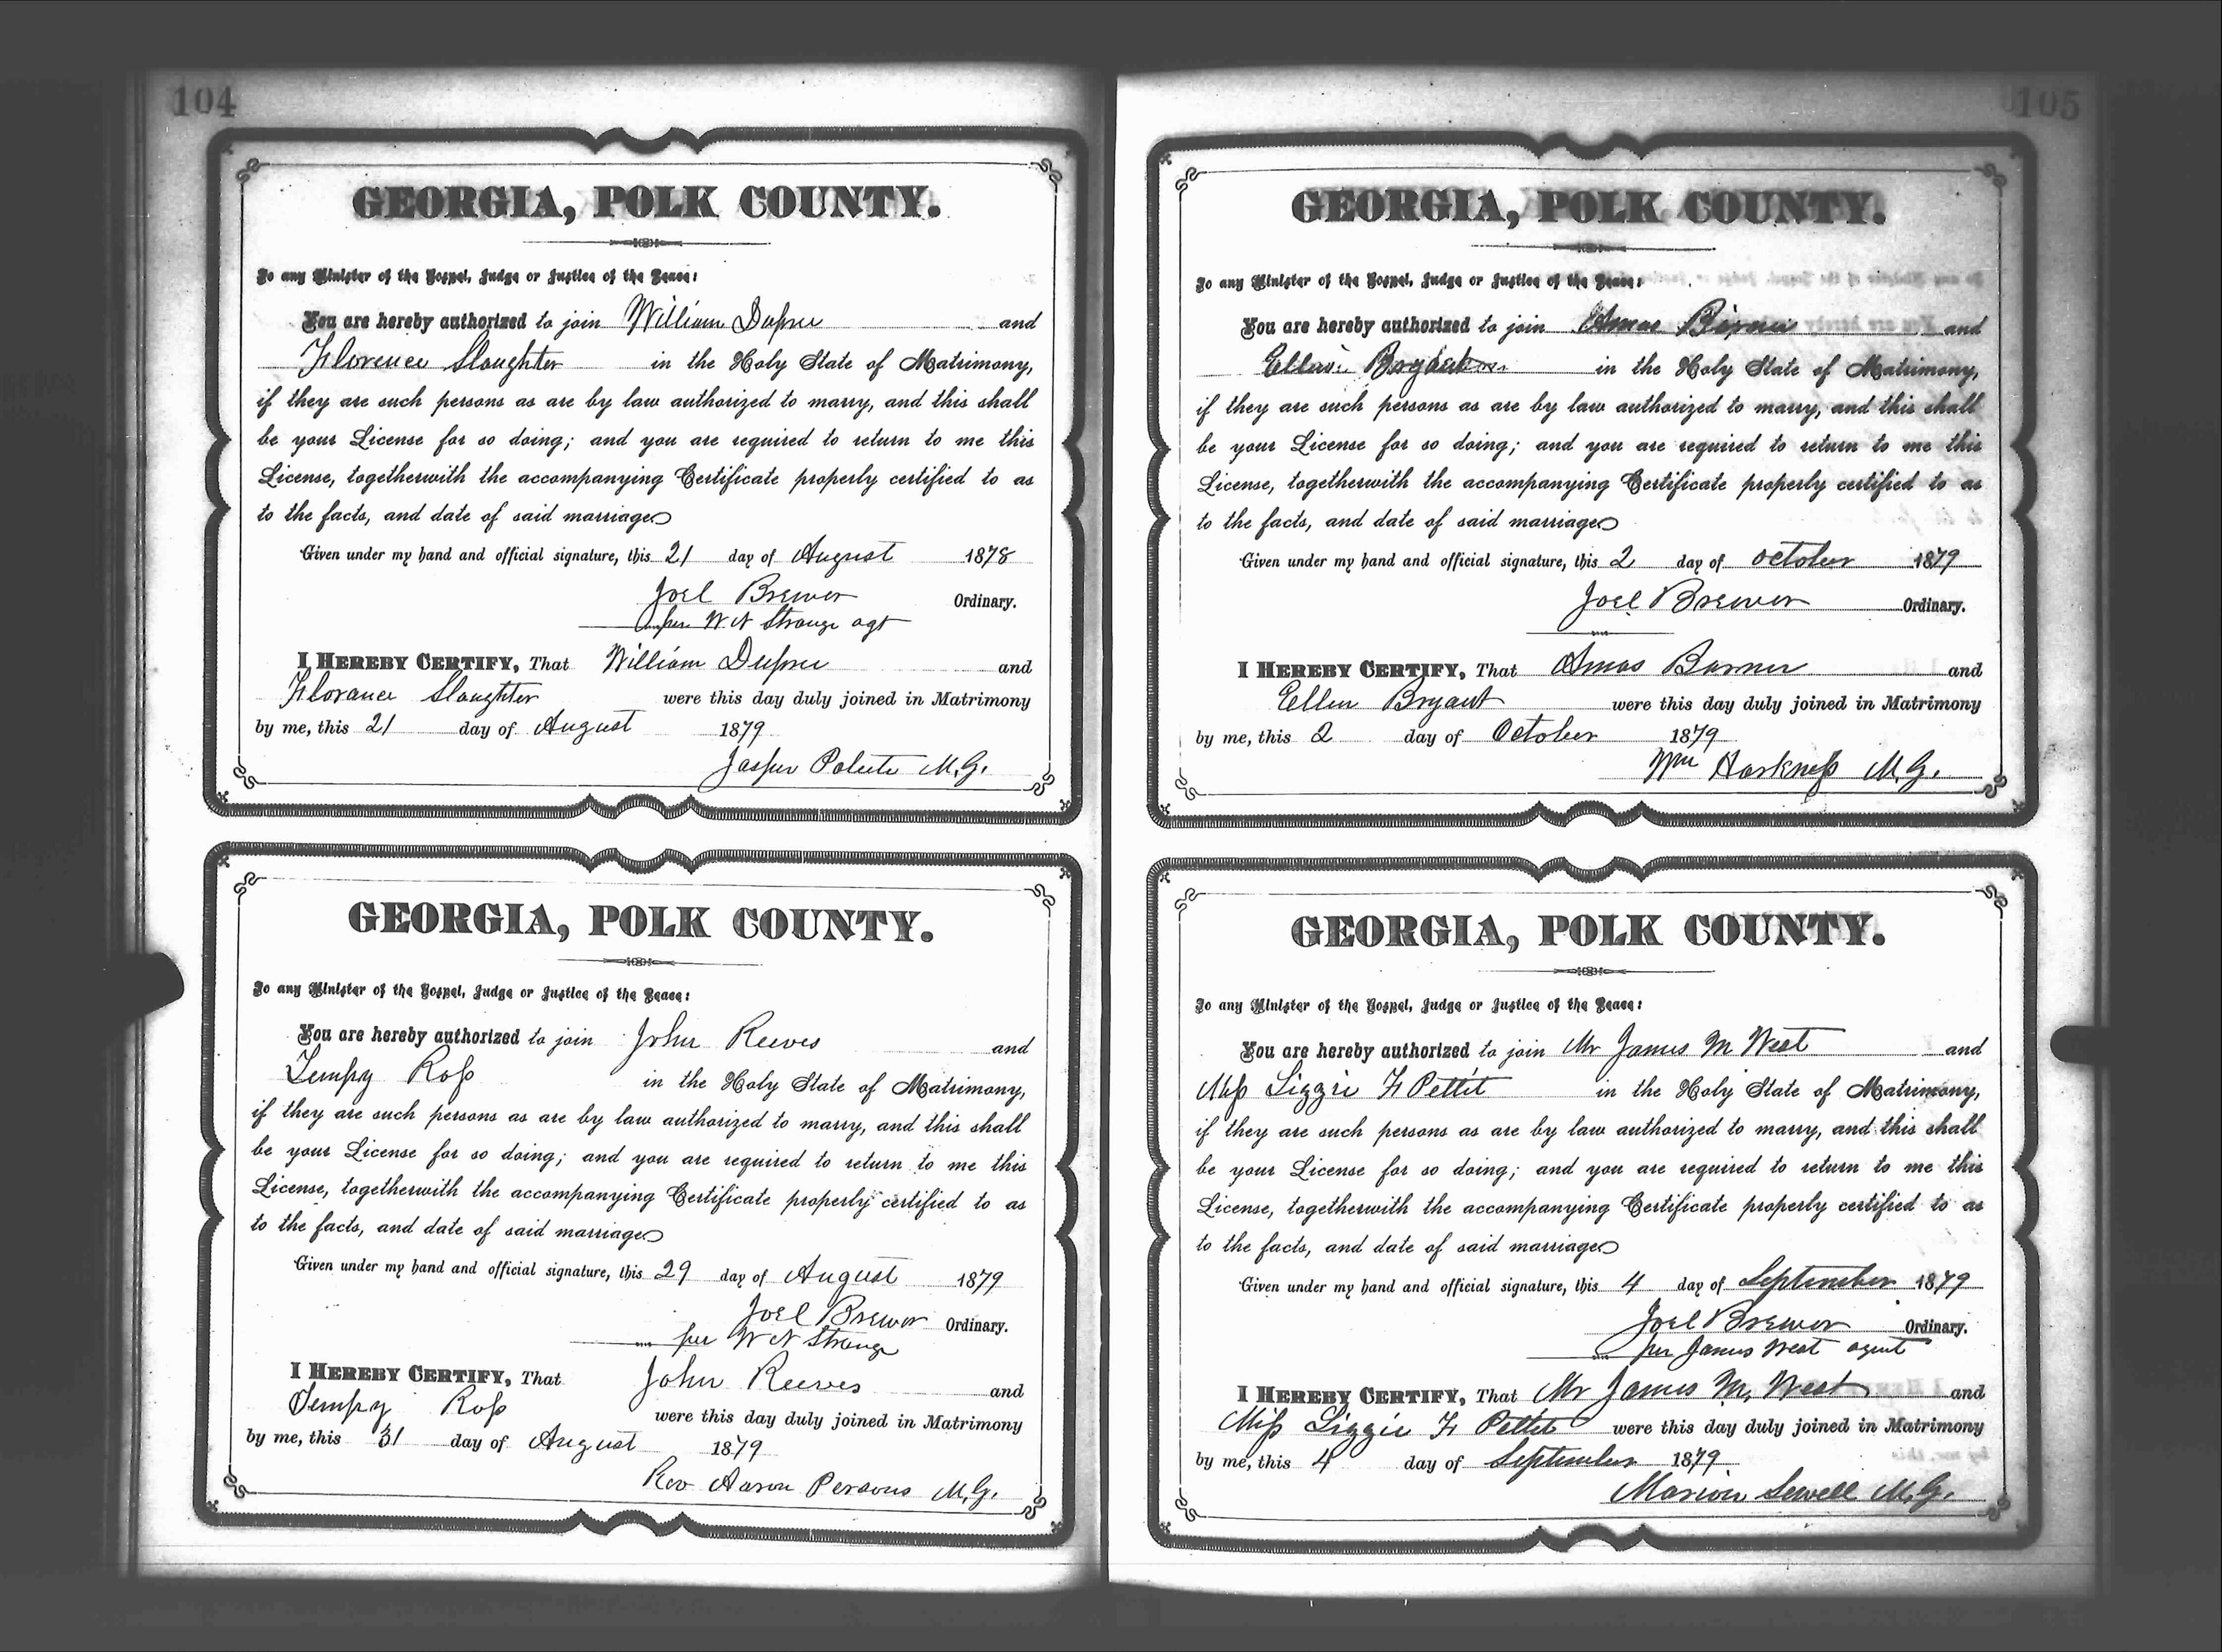 104
GEORGIA, POLK COUNTY.
To any Minister of the Gospel, Judge or Justice of the Peace:
You are hereby authorized to join William Dupree and
Florence Slaughter in the Holy State of Matrimony,
if they are such persons as are by law authorized to marry, and this shall
be your License for so doing; and you are required to return to me this
License, togetherwith the accompanying Certificate properly certified to as
to the facts, and date of said marriage
Given under my hand and official signature, this 21 day of August 1878
Joel Brewer Ordinary.
per W N Strange agt
I HEREBY CERTIFY, That William Dupree and
Florance Slaughter were this day duly joined in Matrimony
by me, this 21 day of August 1879
Jasper M.G.
GEORGIA, POLK COUNTY.
To any Minister of the Gospel, Judge or Justice of the Peace:
You are hereby authorized to join John Reeves and
Tempy Ross in the Holy State of Matrimony,
if they are such persons as are by law authorized to marry, and this shall
be your License for so doing; and you are required to return to me this
License, togetherwith the accompanying Certificate properly certified to as
to the facts, and date of said marriage
Given under my hand and official signature, this 29 day of August 1879
Joel Brewer Ordinary.
per W N Strange
I HEREBY CERTIFY, That John Reeves and
Tempy Ross were this day duly joined in Matrimony
by me, this 31 day of August 1879
Rev Aaron Persons M.G.
105
GEORGIA, POLK COUNTY.
To any Minister of the Gospel, Judge or Justice of the Peace:
You are hereby authorized to join Amos and
Ellen Bryant in the Holy State of Matrimony,
if they are such persons as are by law authorized to marry, and this shall
be your License for so doing; and you are required to return to me this
License, togetherwith the accompanying Certificate properly certified to as
to the facts, and date of said marriage
Given under my hand and official signature, this 2 day of October 1879
Joel Brewer Ordinary.
I HEREBY CERTIFY, That Amos Barner and
Ellen Bryant were this day duly joined in Matrimony
by me, this 2 day of October 1879
Wm Harkness M.G.
GEORGIA, POLK COUNTY.
To any Minister of the Gospel, Judge or Justice of the Peace:
You are hereby authorized to join Mr James M West and
Miss Lizzie F Pettit in the Holy State of Matrimony,
if they are such persons as are by law authorized to marry, and this shall
be your License for so doing; and you are required to return to me this
License, togetherwith the accompanying Certificate properly certified to as
to the facts, and date of said marriage
Given under my hand and official signature, this 4 day of September 1879
Joel Brewer Ordinary.
per James West agent
I HEREBY CERTIFY, That Mr James M. West and
Miss Lizzie F Pettit were this day duly joined in Matrimony
by me, this 4 day of September 1879
Marion Sewell M.G.